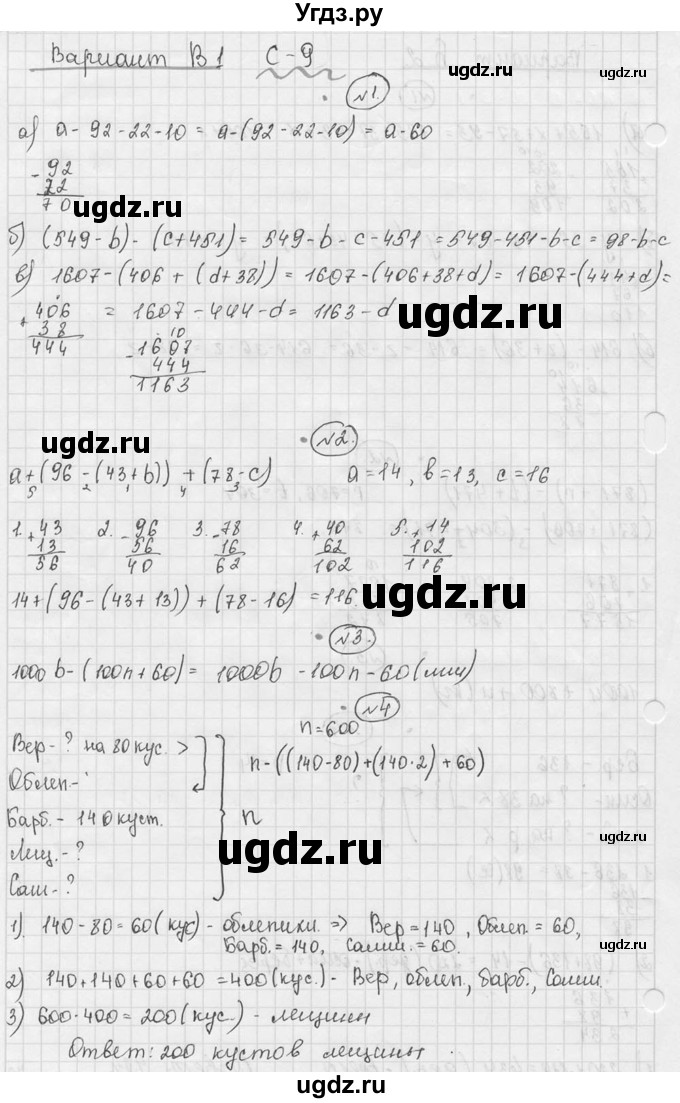 Угдз.ру
Вариант В1 С-9
ugdz.ru
ugdz.ru
№1.
а) a-92-22-10 = a-(92-22-10) = a-60
-92
22
70
ugdz.ru
б) (549-b)-(c+451) = 549-b-c-451 = 549-451-b-c = 98-b-c
в) 1607-(406+(d+38)) = 1607-(406+38+d) = 1607-(444+d) =
+406
38
444
= 1607-444-d = 1163-d
ugdz.ru
10
-1607
444
1163
ugdz.ru
№2.
a+(96-(43+b))+(78-c) a=14, b=13, c=16
5 2 1 4 3
1. +43 2. -96 3. -78 4. +40 5. +14
13 56 16 62 102
56 40 62 102 116
14+(96-(43+13))+(78-16) = 116
ugdz.ru
№3.
1000b-(100n+60) = 1000b-100n-60 (мм)
№4
n=600
Вер-? на 80 кус. >
n-((140-80)+(140·2)+60)
Облеп-
Барб.- 140 куст.
n
ugdz.ru
Лещ.-?
Саш-?
1) 140-80=60 (кус)- облепихи. => Вер=140, Облеп.=60,
Барб.=140, Салии.=60.
ugdz.ru
2) 140+140+60+60=400 (кус.)- Вер, облеп., барб., Солии.
3) 600-400=200 (кус.)- лещины
Ответ: 200 кустов лещины.
ugdz.ru